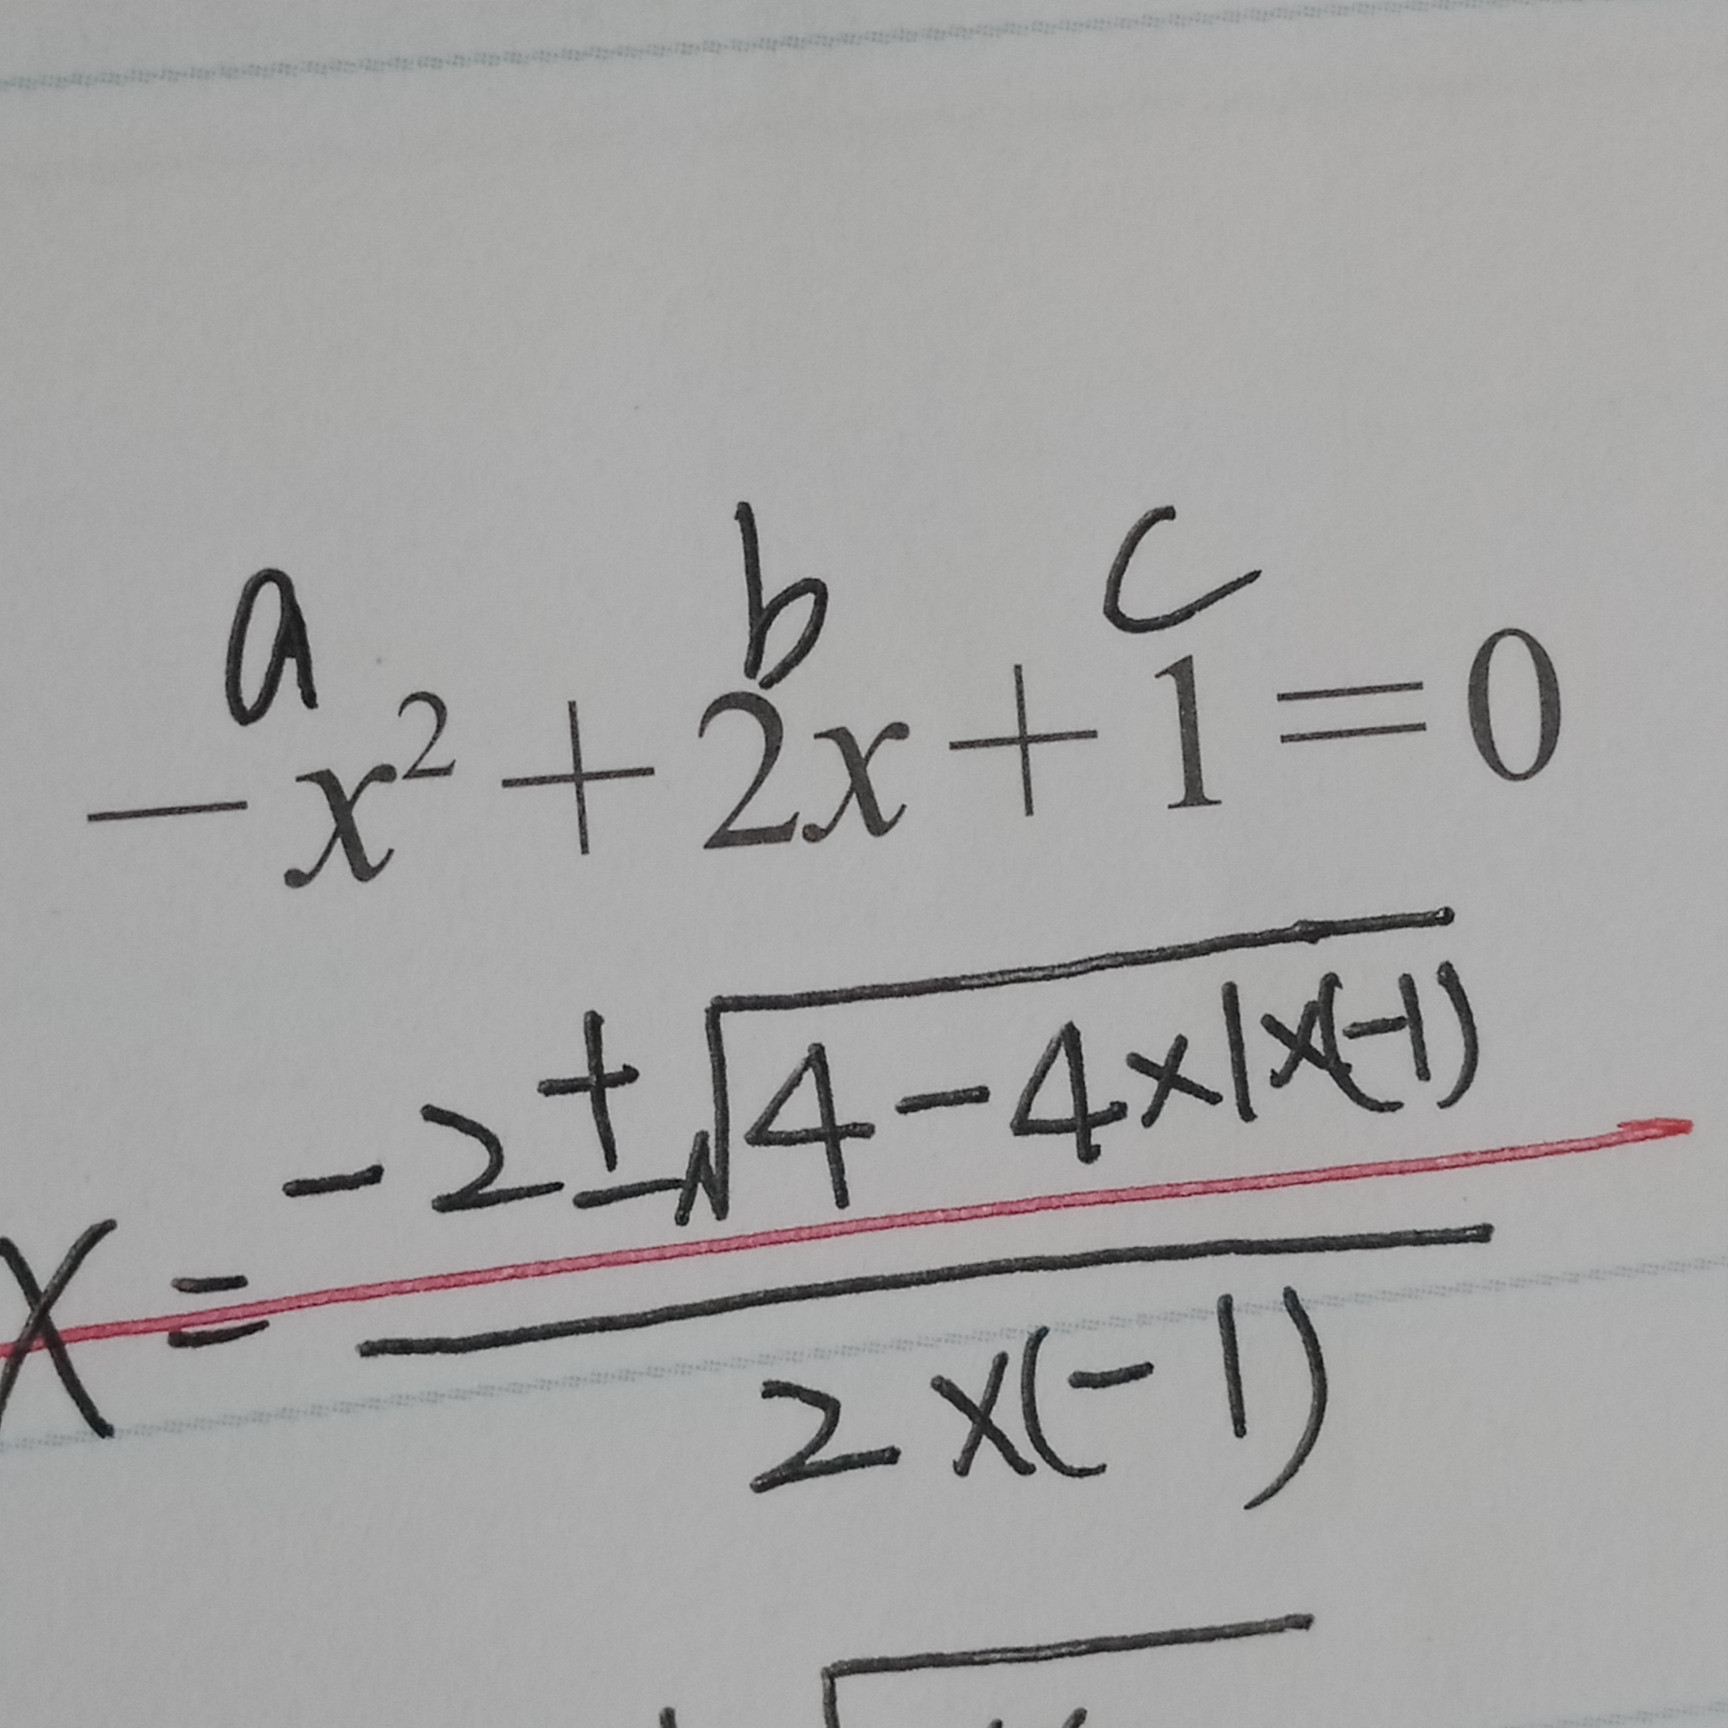 a b c
−x²+2x+1=0
x = (-2±√(4-4×1×(-1)))/(2×(-1))